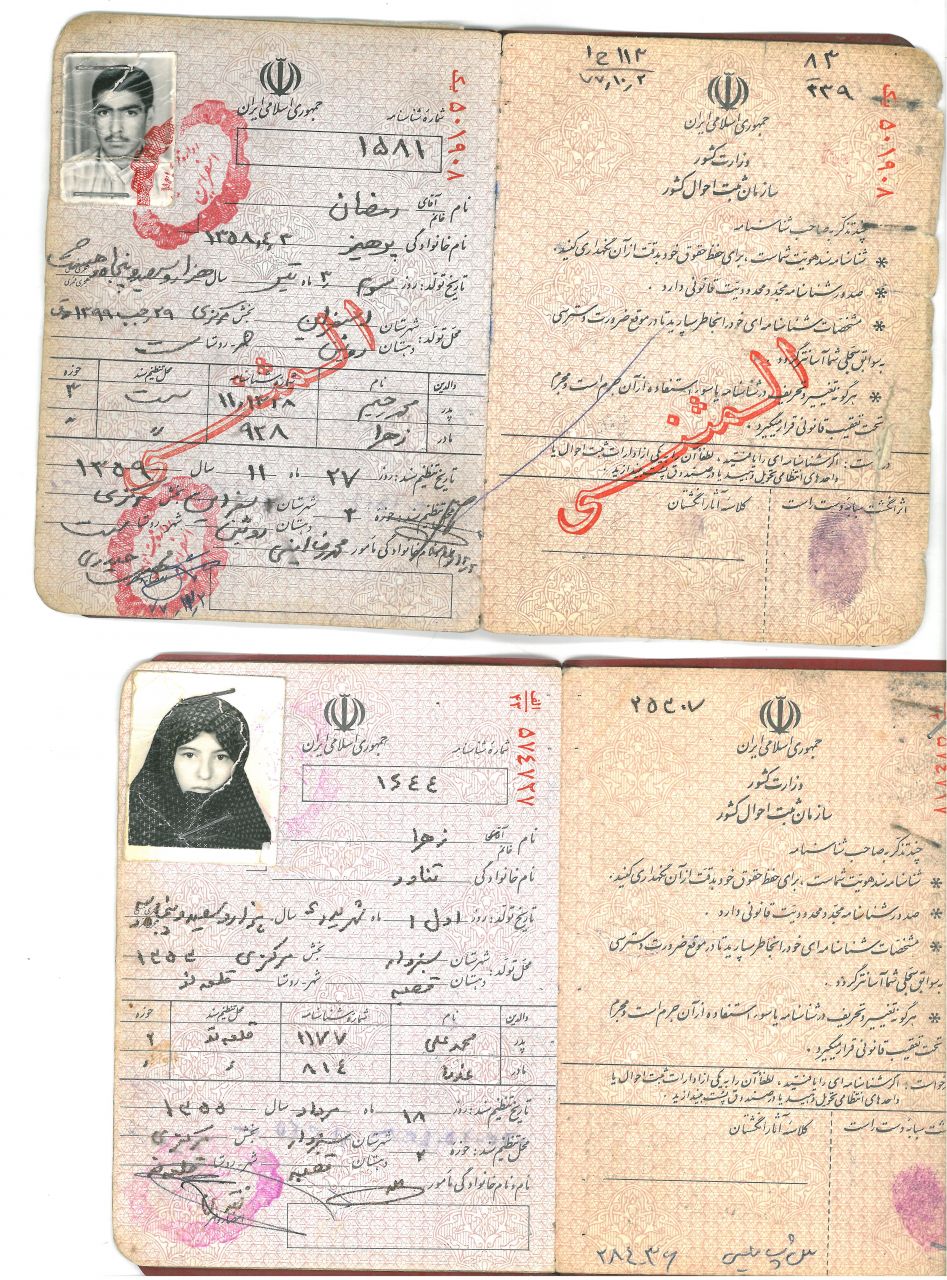 جمهوری اسلامی ایران
شماره شناسنامه
۱۵۸۱
ی ۵۰۱۹۰۸
نام آقای خانم رمضان
نام خانوادگی پرهیز ۱۳۵۸٫۴٫۳
تاریخ تولد: روز سوم ۳ ماه تیر سال هزار و سیصد و پنجاه و هشت
محل تولد: شهرستان اسفراین بخش مرکزی ۲۹ رجب ۱۳۹۹
دهستان روئین شهر - روستا
والدین نام شماره شناسنامه محل تنظیم سند حوزه
پدر محمد رحیم ۳
مادر زهرا ۹۲۸ " "
تاریخ تنظیم سند: روز ۲۷ ماه ۱۱ سال ۱۳۵۹
محل تنظیم سند: حوزه ۳ شهرستان بخش مرکزی
دهستان روئین شهر - روستا
نام و نام خانوادگی مأمور محمدرضا امینی
المثنی
۱۱۳ ج ۱
۷۷٫۱۰٫۲
۸۳
۲۳۹
ی ۵۰۱۹۰۸
جمهوری اسلامی ایران
وزارت کشور
سازمان ثبت احوال کشور
چند تذکر به صاحب شناسنامه
* شناسنامه سند هویت شماست، برای حفظ حقوق خود بدقت از آن نگهداری کنید.
* صدور شناسنامه مجدد محدودیت قانونی دارد.
* مشخصات شناسنامه ای خود را بخاطر بسپارید تا در موقع ضرورت دسترسی
به سوابق سجلی شما آسانتر گردد.
* هرگونه تغییر و تحریف در شناسنامه یا سوء استفاده از آن جرم است و مجرم
تحت تعقیب قانونی قرار میگیرد.
درخواست: اگر شناسنامه ای را یافتید، لطفاً آن را به یکی از ادارات ثبت احوال یا
واحدهای انتظامی تحویل دهید یا در صندوق پست بیندازید.
اثر انگشت سبابه دست راست
کلاسه آثار انگشتان
المثنی
جمهوری اسلامی ایران
شماره شناسنامه
۱۶۴۴
الف ۲۳ ۵۷۴۷۲۷
نام آقای خانم زهرا
نام خانوادگی تناور
تاریخ تولد: روز اول ۱ ماه شهریور سال هزار و سیصد و پنجاه و
محل تولد: شهرستان سبزوار بخش مرکزی ۱۳۵۳
دهستان قصبه شهر - روستا قلعه نو
والدین نام شماره شناسنامه محل تنظیم سند حوزه
پدر محمد علی ۱۱۷۷ قلعه نو ۲
مادر ۸۱۴ " "
تاریخ تنظیم سند: روز ۱۸ ماه مرداد سال ۱۳۵۵
محل تنظیم سند: حوزه ۲ شهرستان سبزوار بخش مرکزی
دهستان قصبه شهر - روستا قلعه نو
نام و نام خانوادگی مأمور
۲۵۳۰۷
جمهوری اسلامی ایران
وزارت کشور
سازمان ثبت احوال کشور
چند تذکر به صاحب شناسنامه
* شناسنامه سند هویت شماست، برای حفظ حقوق خود بدقت از آن نگهداری کنید.
* صدور شناسنامه مجدد محدودیت قانونی دارد.
* مشخصات شناسنامه ای خود را بخاطر بسپارید تا در موقع ضرورت دسترسی
به سوابق سجلی شما آسانتر گردد.
* هرگونه تغییر و تحریف در شناسنامه یا سوء استفاده از آن جرم است و مجرم
تحت تعقیب قانونی قرار میگیرد.
خواست: اگر شناسنامه ای را یافتید، لطفاً آن را به یکی از ادارات ثبت احوال یا
واحدهای انتظامی تحویل دهید یا در صندوق پست بیندازید.
گشت سبابه دست راست
کلاسه آثار انگشتان
۲۸۴۳۶